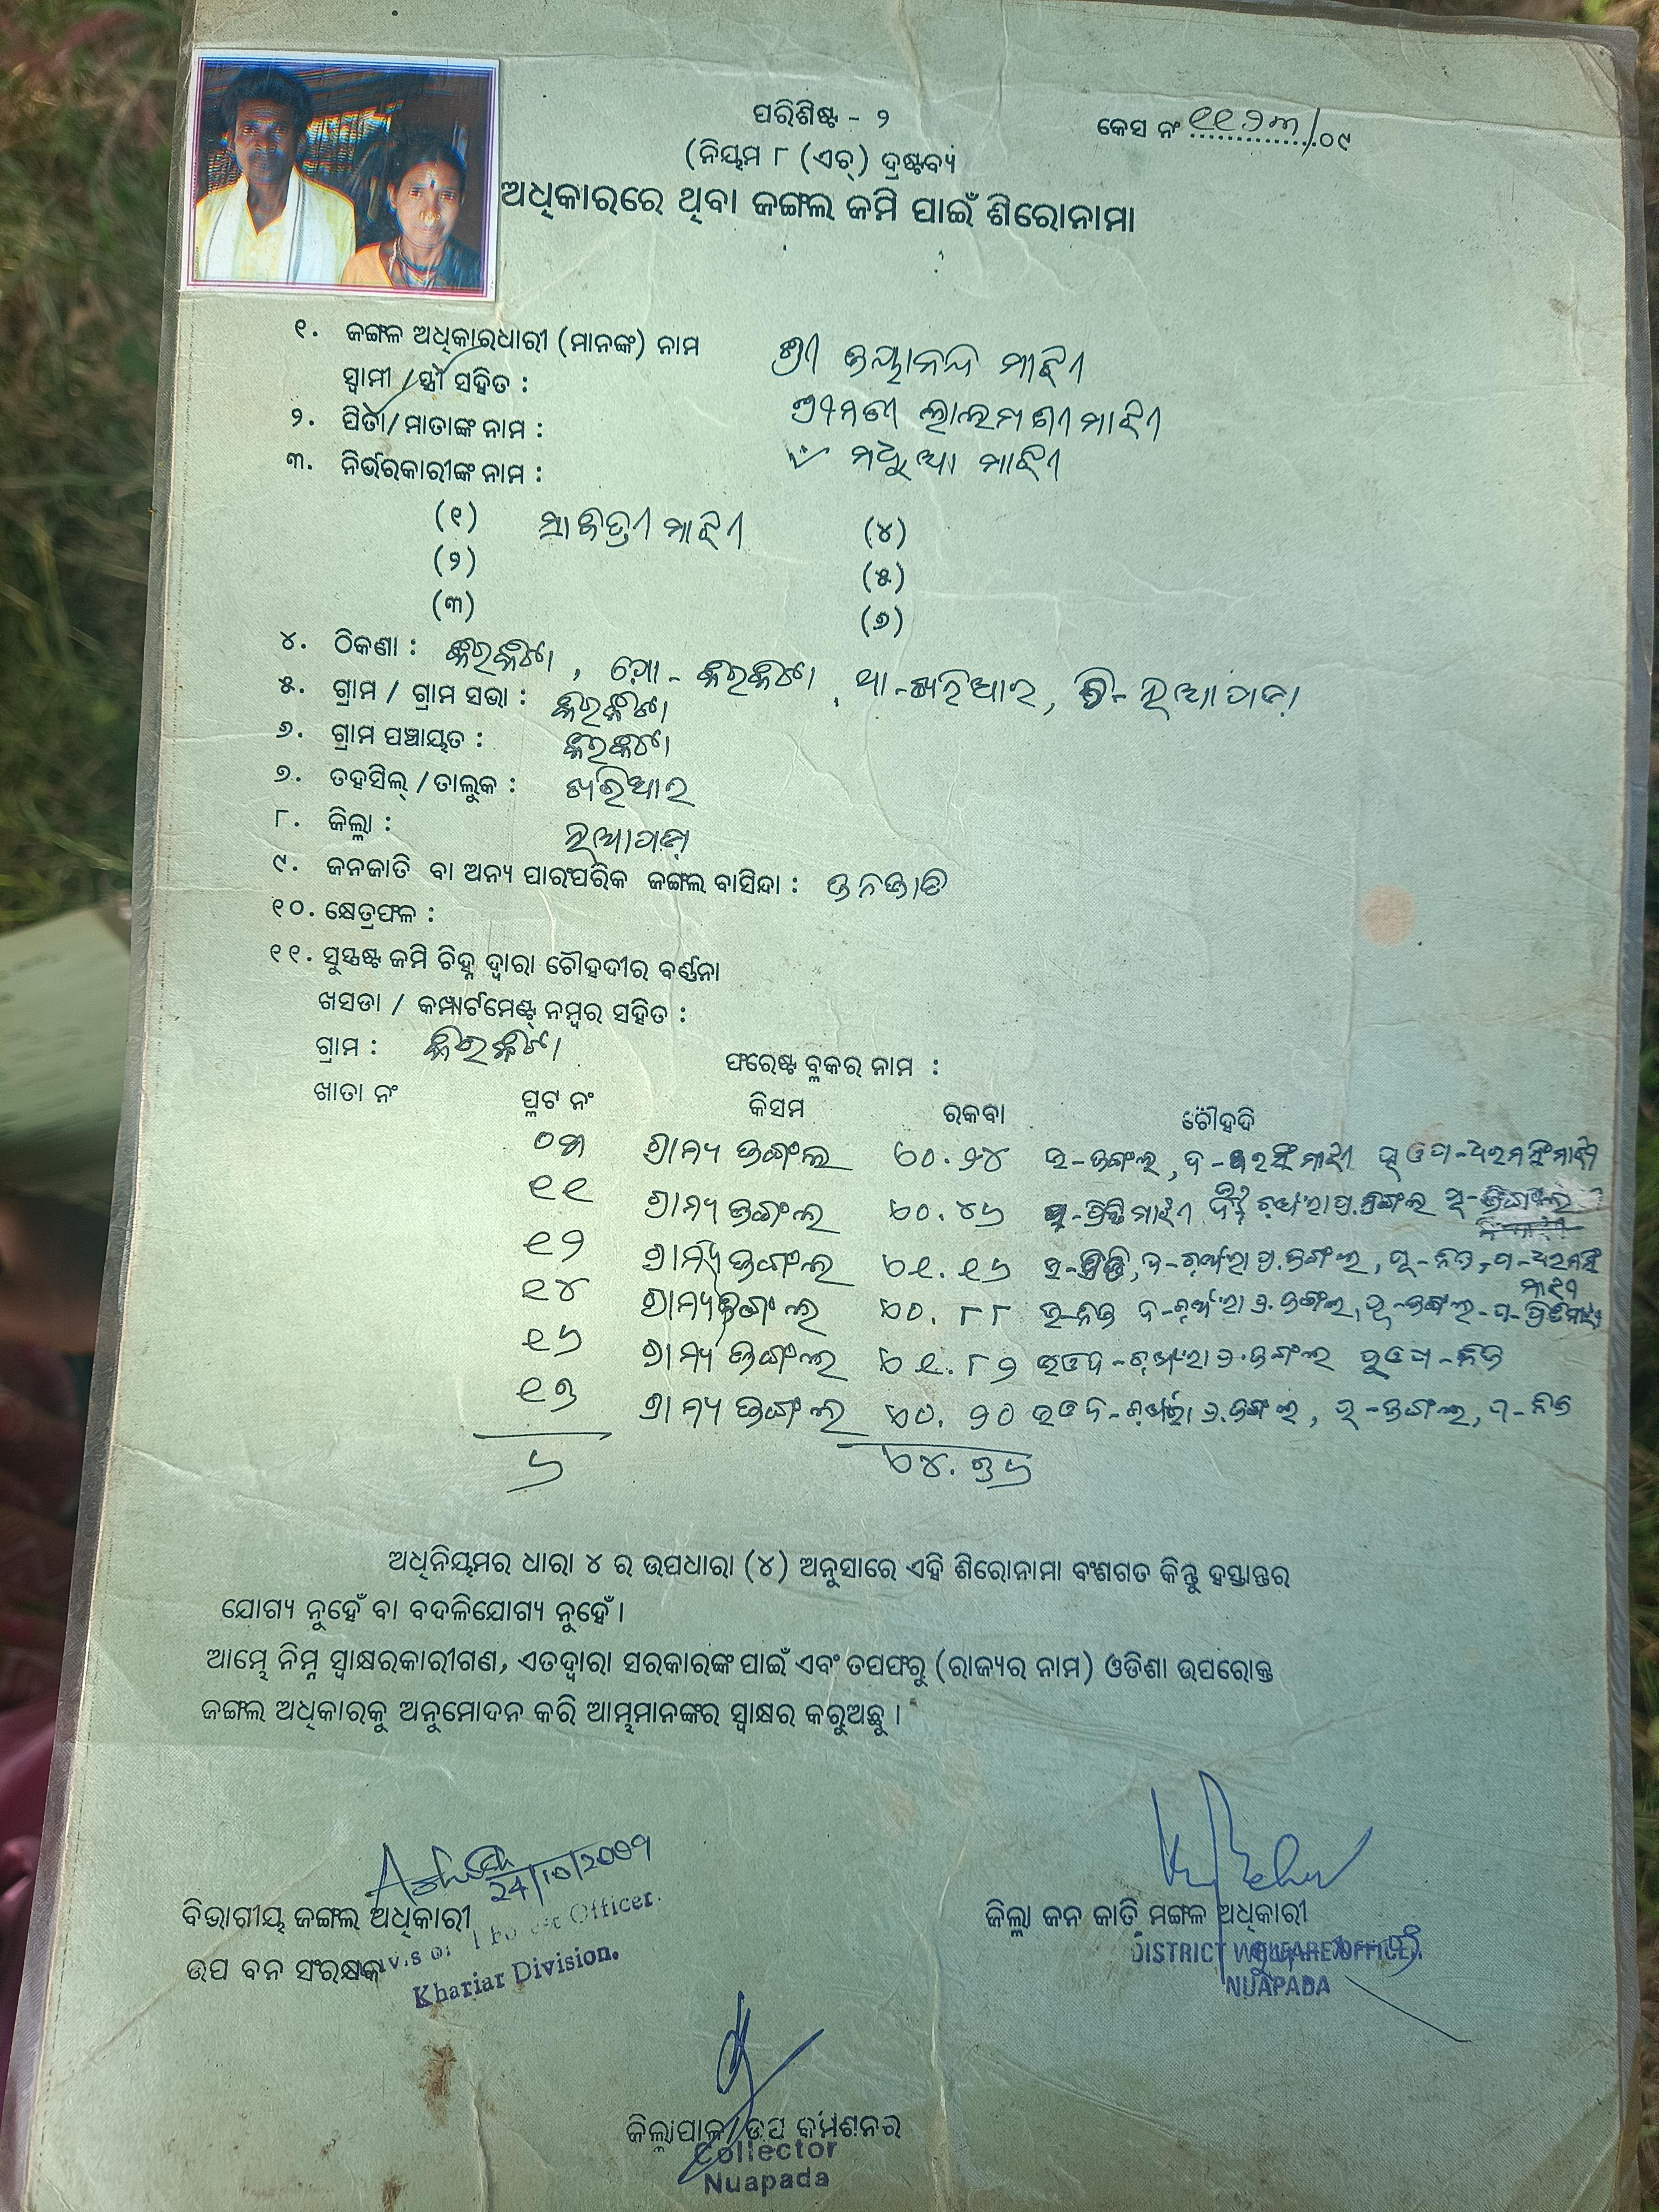 ପରିଶିଷ୍ଟ - ୨
କେସ ନଂ ୧୧୨୩/୦୯
(ନିୟମ ୮ (ଏଚ୍) ଦ୍ରଷ୍ଟବ୍ୟ
ଅଧିକାରରେ ଥିବା ଜଙ୍ଗଲ ଜମି ପାଇଁ ଶିରୋନାମା
୧. ଜଙ୍ଗଳ ଅଧିକାରଧାରୀ (ମାନଙ୍କ) ନାମ ଶ୍ରୀ ଜୟାନନ୍ଦ ମାଝୀ
ସ୍ୱାମୀ / ସ୍ତ୍ରୀ ସହିତ : ଶ୍ରୀମତୀ ଲାଲମଣୀ ମାଝୀ
୨. ପିତା/ମାତାଙ୍କ ନାମ : ମଧୁଆ ମାଝୀ
୩. ନିର୍ଭରକାରୀଙ୍କ ନାମ :
(୧) ସାବିତ୍ରୀ ମାଝୀ (୪)
(୨) (୫)
(୩) (୬)
୪. ଠିକଣା : କିରକିଟା, ପୋ - କିରକିଟା, ଥା - ଖରିଆର, ଜି - ନୂଆପଡା
୫. ଗ୍ରାମ / ଗ୍ରାମ ସଭା : କିରକିଟା
୬. ଗ୍ରାମ ପଞ୍ଚାୟତ : କିରକିଟା
୭. ତହସିଲ୍ / ତାଲୁକ : ଖରିଆର
୮. ଜିଲ୍ଲା : ନୂଆପଡା
୯. ଜନଜାତି ବା ଅନ୍ୟ ପାରଂପରିକ ଜଙ୍ଗଲ ବାସିନ୍ଦା : ଜନଜାତି
୧୦. କ୍ଷେତ୍ରଫଳ :
୧୧. ସୁସ୍ପଷ୍ଟ ଜମି ଚିହ୍ନ ଦ୍ୱାରା ଚୌହଦୀର ବର୍ଣ୍ଣନା
ଖସଡା / କମ୍ପାର୍ଟମେଣ୍ଟ୍ ନମ୍ବର ସହିତ :
ଗ୍ରାମ : କିରକିଟା ଫରେଷ୍ଟ ବ୍ଲକର ନାମ :
ଖାତା ନଂ ପ୍ଲଟ ନଂ କିସମ ରକବା ଚୌହଦି
୦୩ ଗ୍ରାମ୍ୟ ଜଙ୍ଗଲ ୦.୨୪ ଉ - ଜଙ୍ଗଲ, ଦ -
୧୧ ଗ୍ରାମ୍ୟ ଜଙ୍ଗଲ ୦.୪୬
୧୨ ଗ୍ରାମ୍ୟ ଜଙ୍ଗଲ ୧.୧୬
୧୪ ଗ୍ରାମ୍ୟ ଜଙ୍ଗଲ ୦.୮୮ ଉ - ନିଜ
୧୬ ଗ୍ରାମ୍ୟ ଜଙ୍ଗଲ ୧.୮୨ ଉ ଓ ଦ - ଜଙ୍ଗଲ ପୂ ଓ ପ - ନିଜ
୧୭ ଗ୍ରାମ୍ୟ ଜଙ୍ଗଲ ୦.୨୦ ଉ ଓ ଦ - ଜଙ୍ଗଲ, ପୂ - ଜଙ୍ଗଲ, ପ - ନିଜ
୬ ୪.୭୬
ଅଧିନିୟମର ଧାରା ୪ ର ଉପଧାରା (୪) ଅନୁସାରେ ଏହି ଶିରୋନାମା ବଂଶଗତ କିନ୍ତୁ ହସ୍ତାନ୍ତର
ଯୋଗ୍ୟ ନୁହେଁ ବା ବଦଳିଯୋଗ୍ୟ ନୁହେଁ ।
ଆମ୍ଭେ ନିମ୍ନ ସ୍ୱାକ୍ଷରକାରୀଗଣ, ଏତଦ୍ୱାରା ସରକାରଙ୍କ ପାଇଁ ଏବଂ ତପଫରୁ (ରାଜ୍ୟର ନାମ) ଓଡିଶା ଉପରୋକ୍ତ
ଜଙ୍ଗଲ ଅଧିକାରକୁ ଅନୁମୋଦନ କରି ଆମ୍ଭମାନଙ୍କର ସ୍ୱାକ୍ଷର କରୁଅଛୁ ।
24/10/2009
ବିଭାଗୀୟ ଜଙ୍ଗଲ ଅଧିକାରୀ
Officer.
ଉପ ବନ ସଂରକ୍ଷକ
Khariar Division.
ଜିଲ୍ଲା ଜନ ଜାତି ମଙ୍ଗଳ ଅଧିକାରୀ
DISTRICT WELFARE OFFICER
NUAPADA
ଜିଲ୍ଲାପାଳ / ଉପ କମିଶନର
Collector
Nuapada